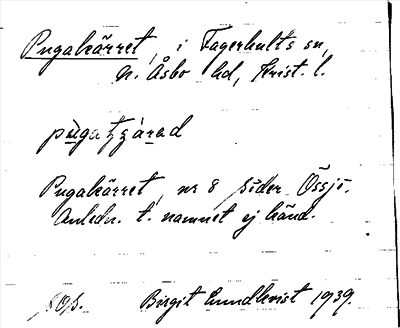 Pugakärret, i Fagerhults sn,
N. Åsbo hd, Krist. l.
Pugakärret, nr 8 söder Össjö.
Anledn. t. namnet ej känd.
Birgit Lundkvist 1939.